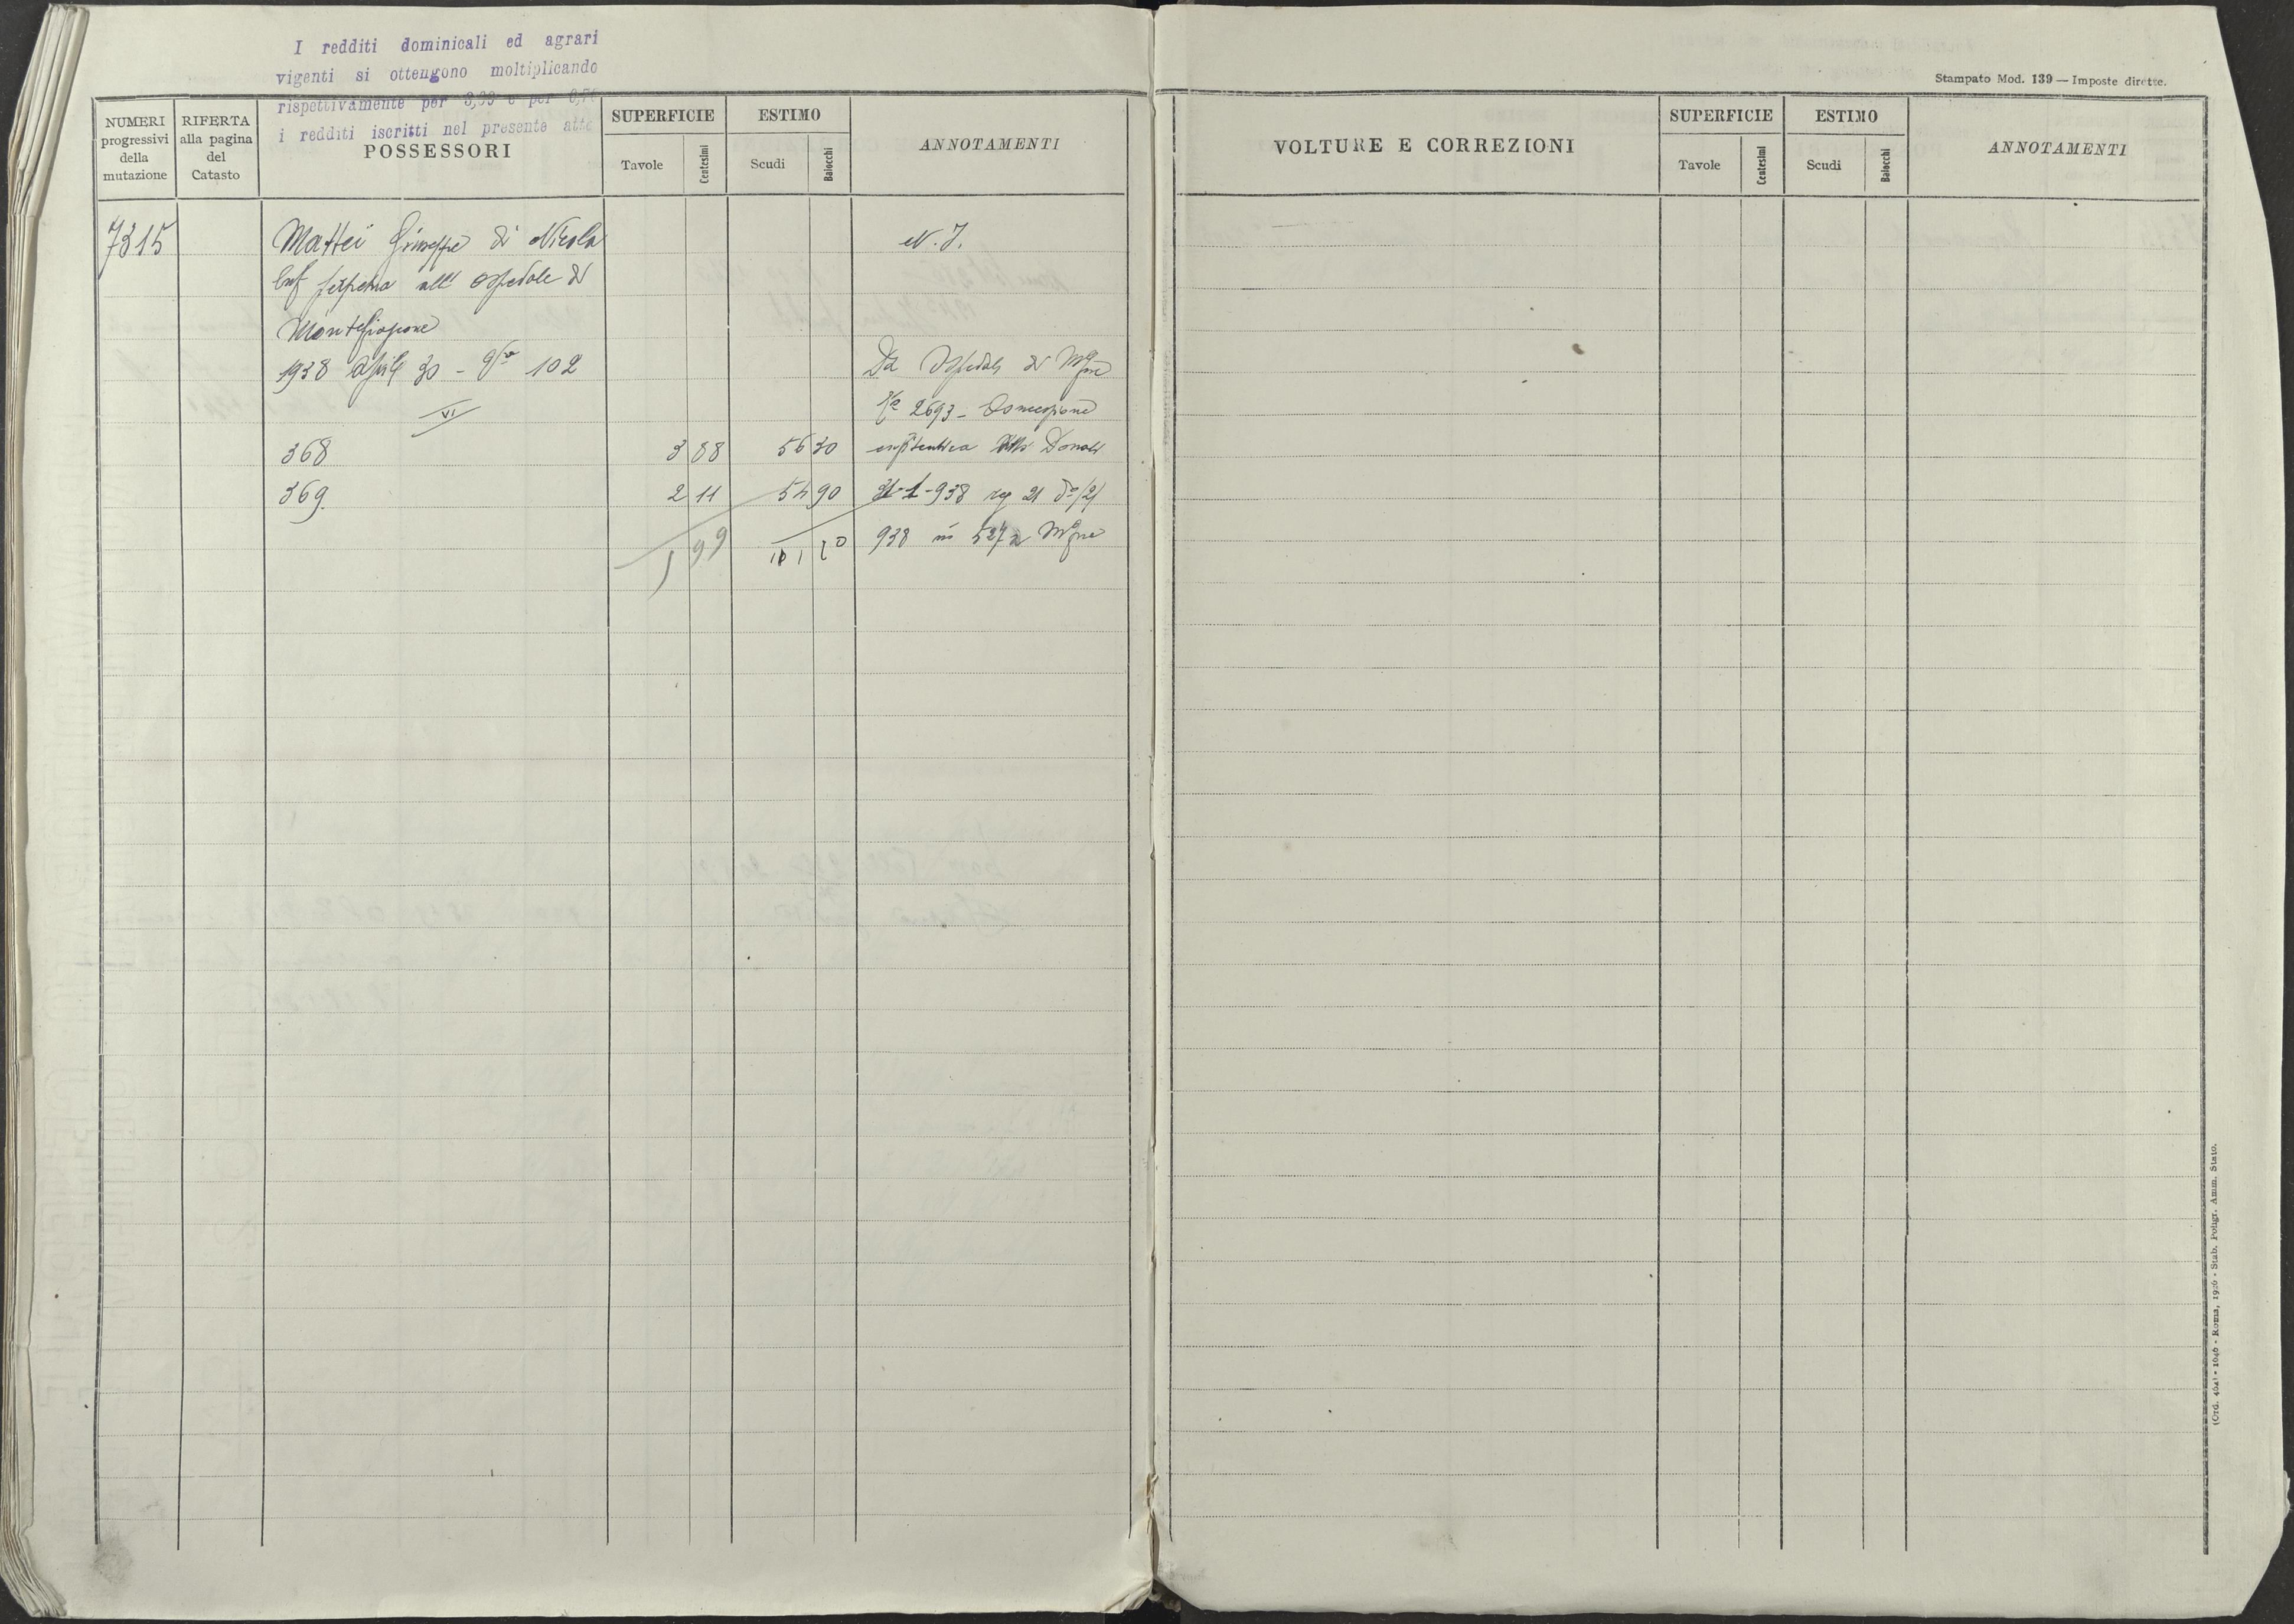 I redditi dominicali ed agrari
vigenti si ottengono moltiplicando
rispettivamente per 3,33 e per
i redditi iscritti nel presente atto
NUMERI
progressivi
della
mutazione
RIFERTA
alla pagina
del
Catasto
POSSESSORI
SUPERFICIE
Tavole
Centesimi
ESTIMO
Scudi
Baiocchi
ANNOTAMENTI
7315
Mattei Giuseppe di Nicola
Enf perpetua all' ospedale di
Montegiorgio
1938 aprile 30 - 102
VI
368 3 88 56 30
369 2 11 54 90
5 99
N. I.
Da Ospedale di
2693 - Concessione
enfiteutica Donati
31-1-938 reg 21
938 in 527
Stampato Mod. 139 — Imposte dirette.
VOLTURE E CORREZIONI
SUPERFICIE
Tavole
Centesimi
ESTIMO
Scudi
Baiocchi
ANNOTAMENTI
Roma, 1926 - Stab. Poligr. Amm. Stato.